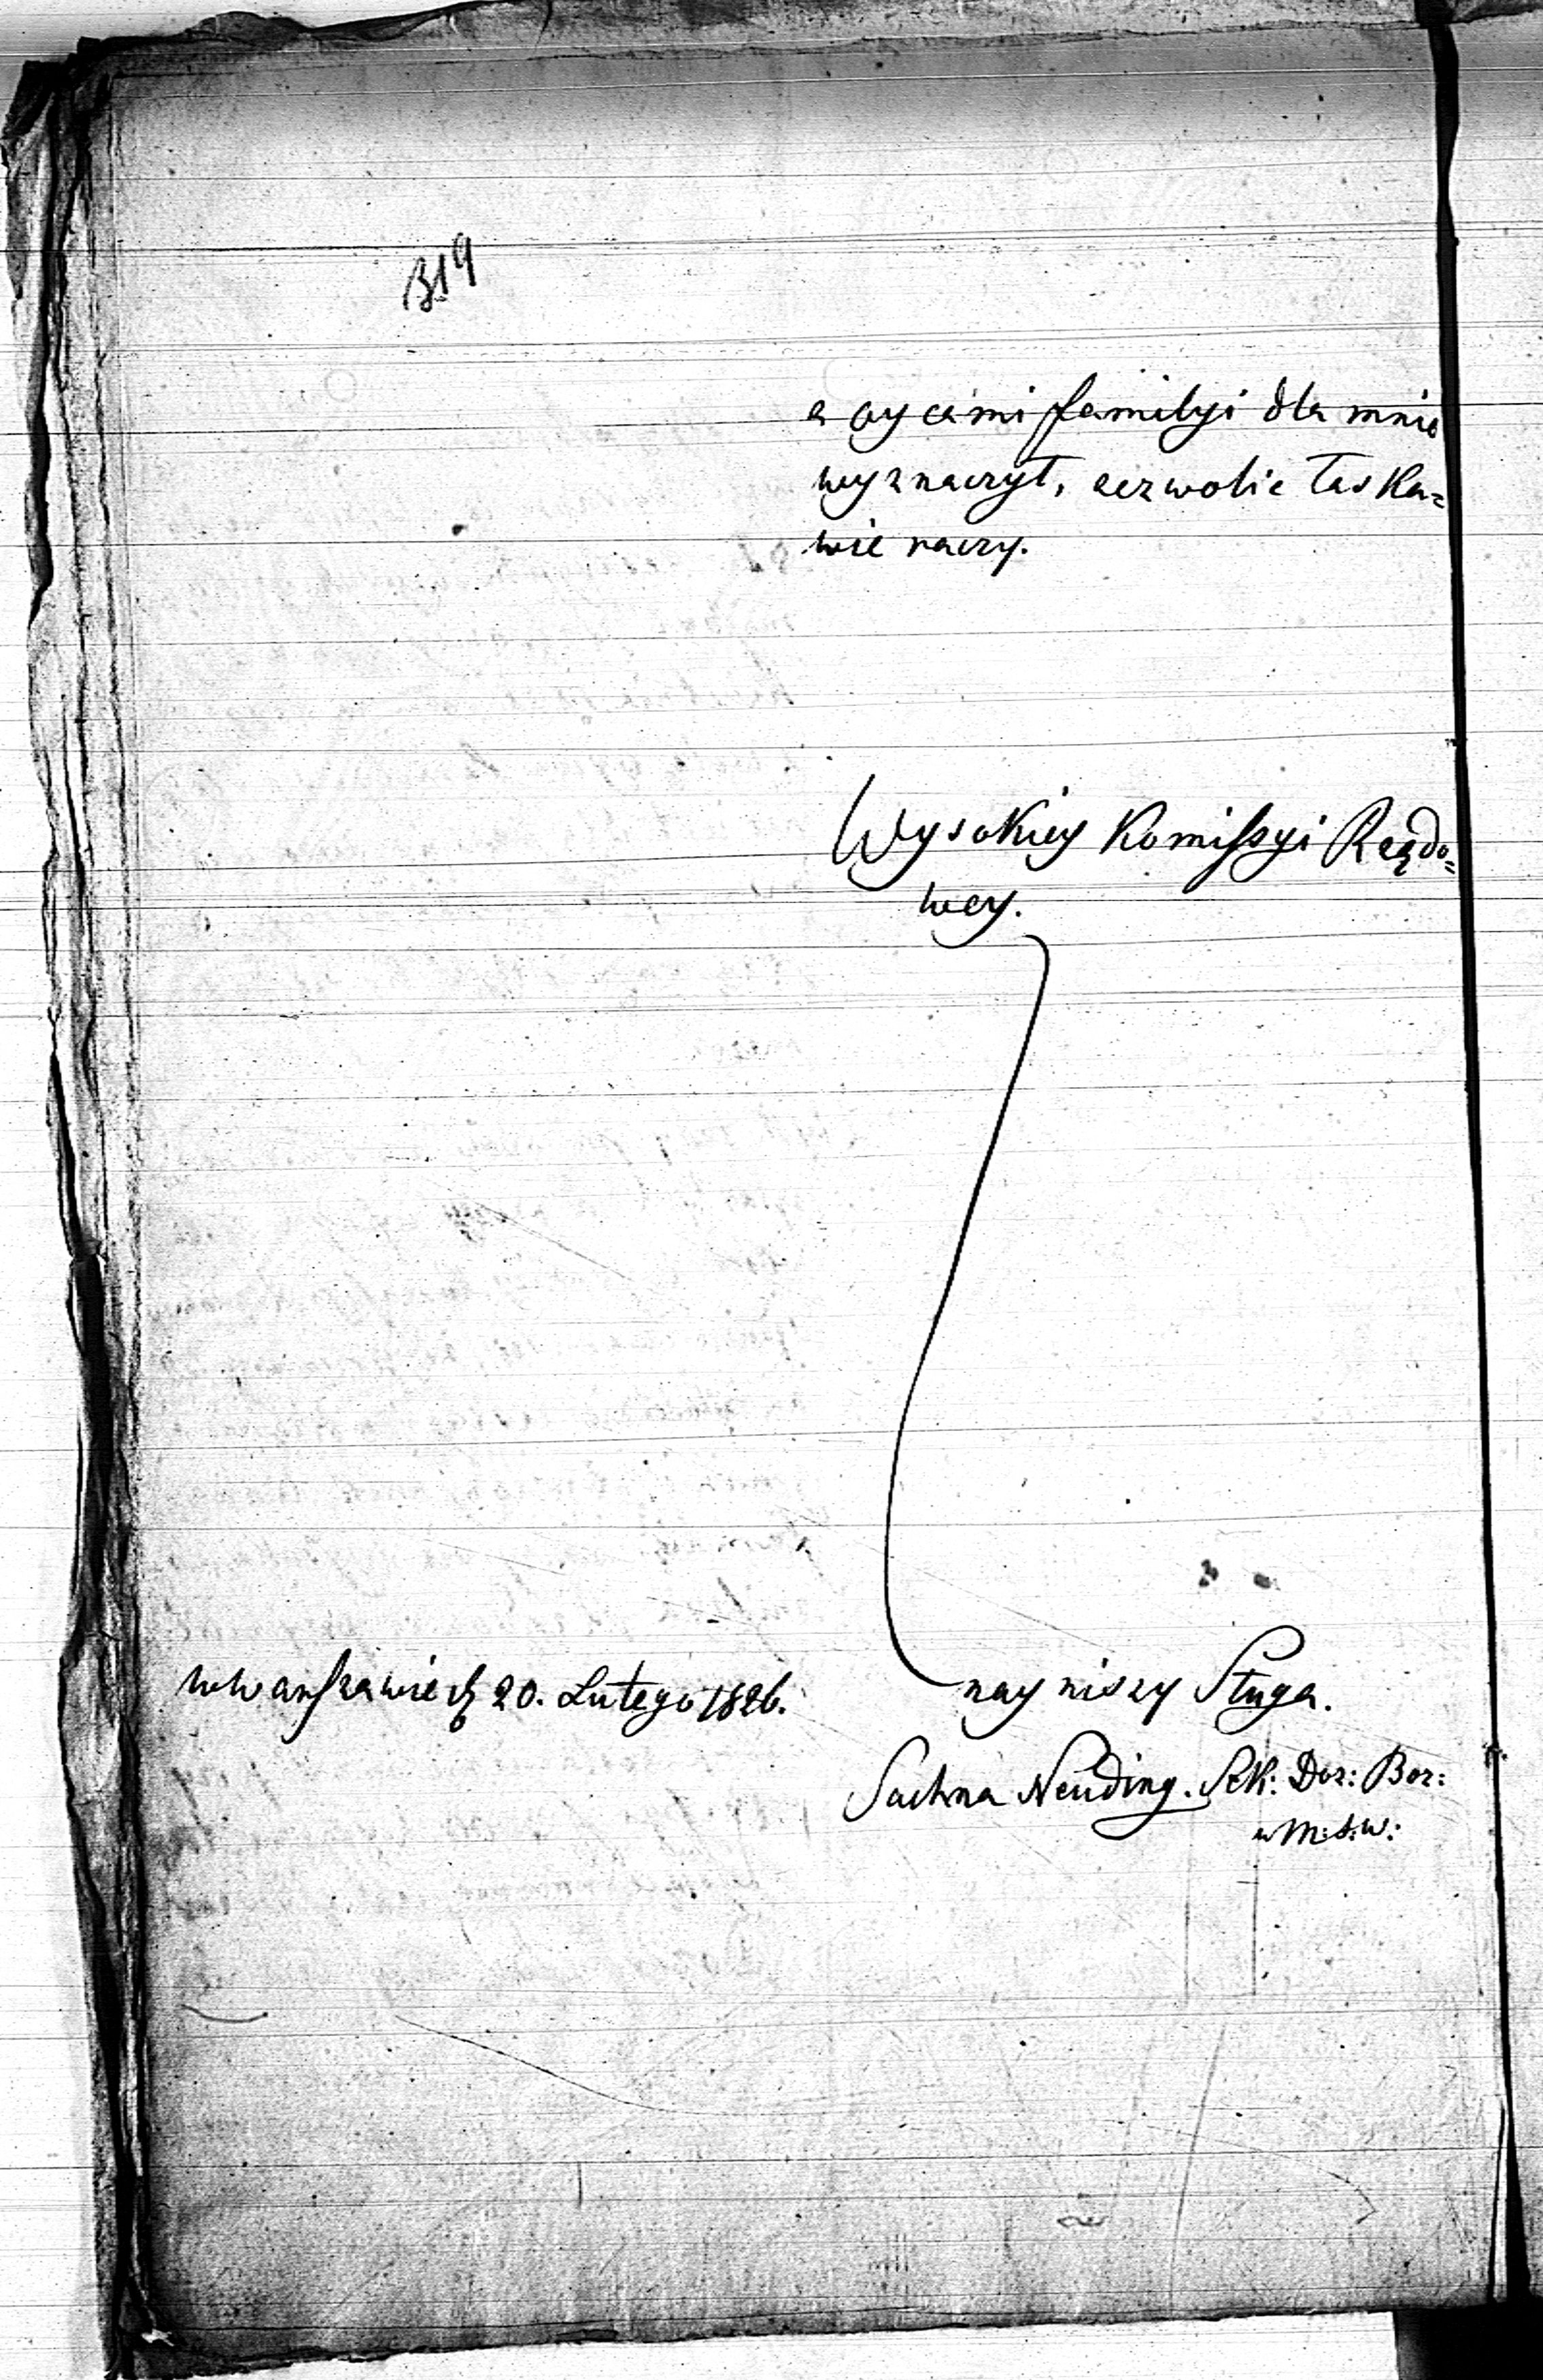 319
a oycami familyi dla mnie
wyznaczył, zezwolić łaska=
wie raczy.
Wysokiey Komissyi Rządo=
wey.
w Warszawie d. 20. Lutego 1826.
nayniszy Sługa.
Sachna Neuding. Sek: Doz: Boz:
w M: S: W: